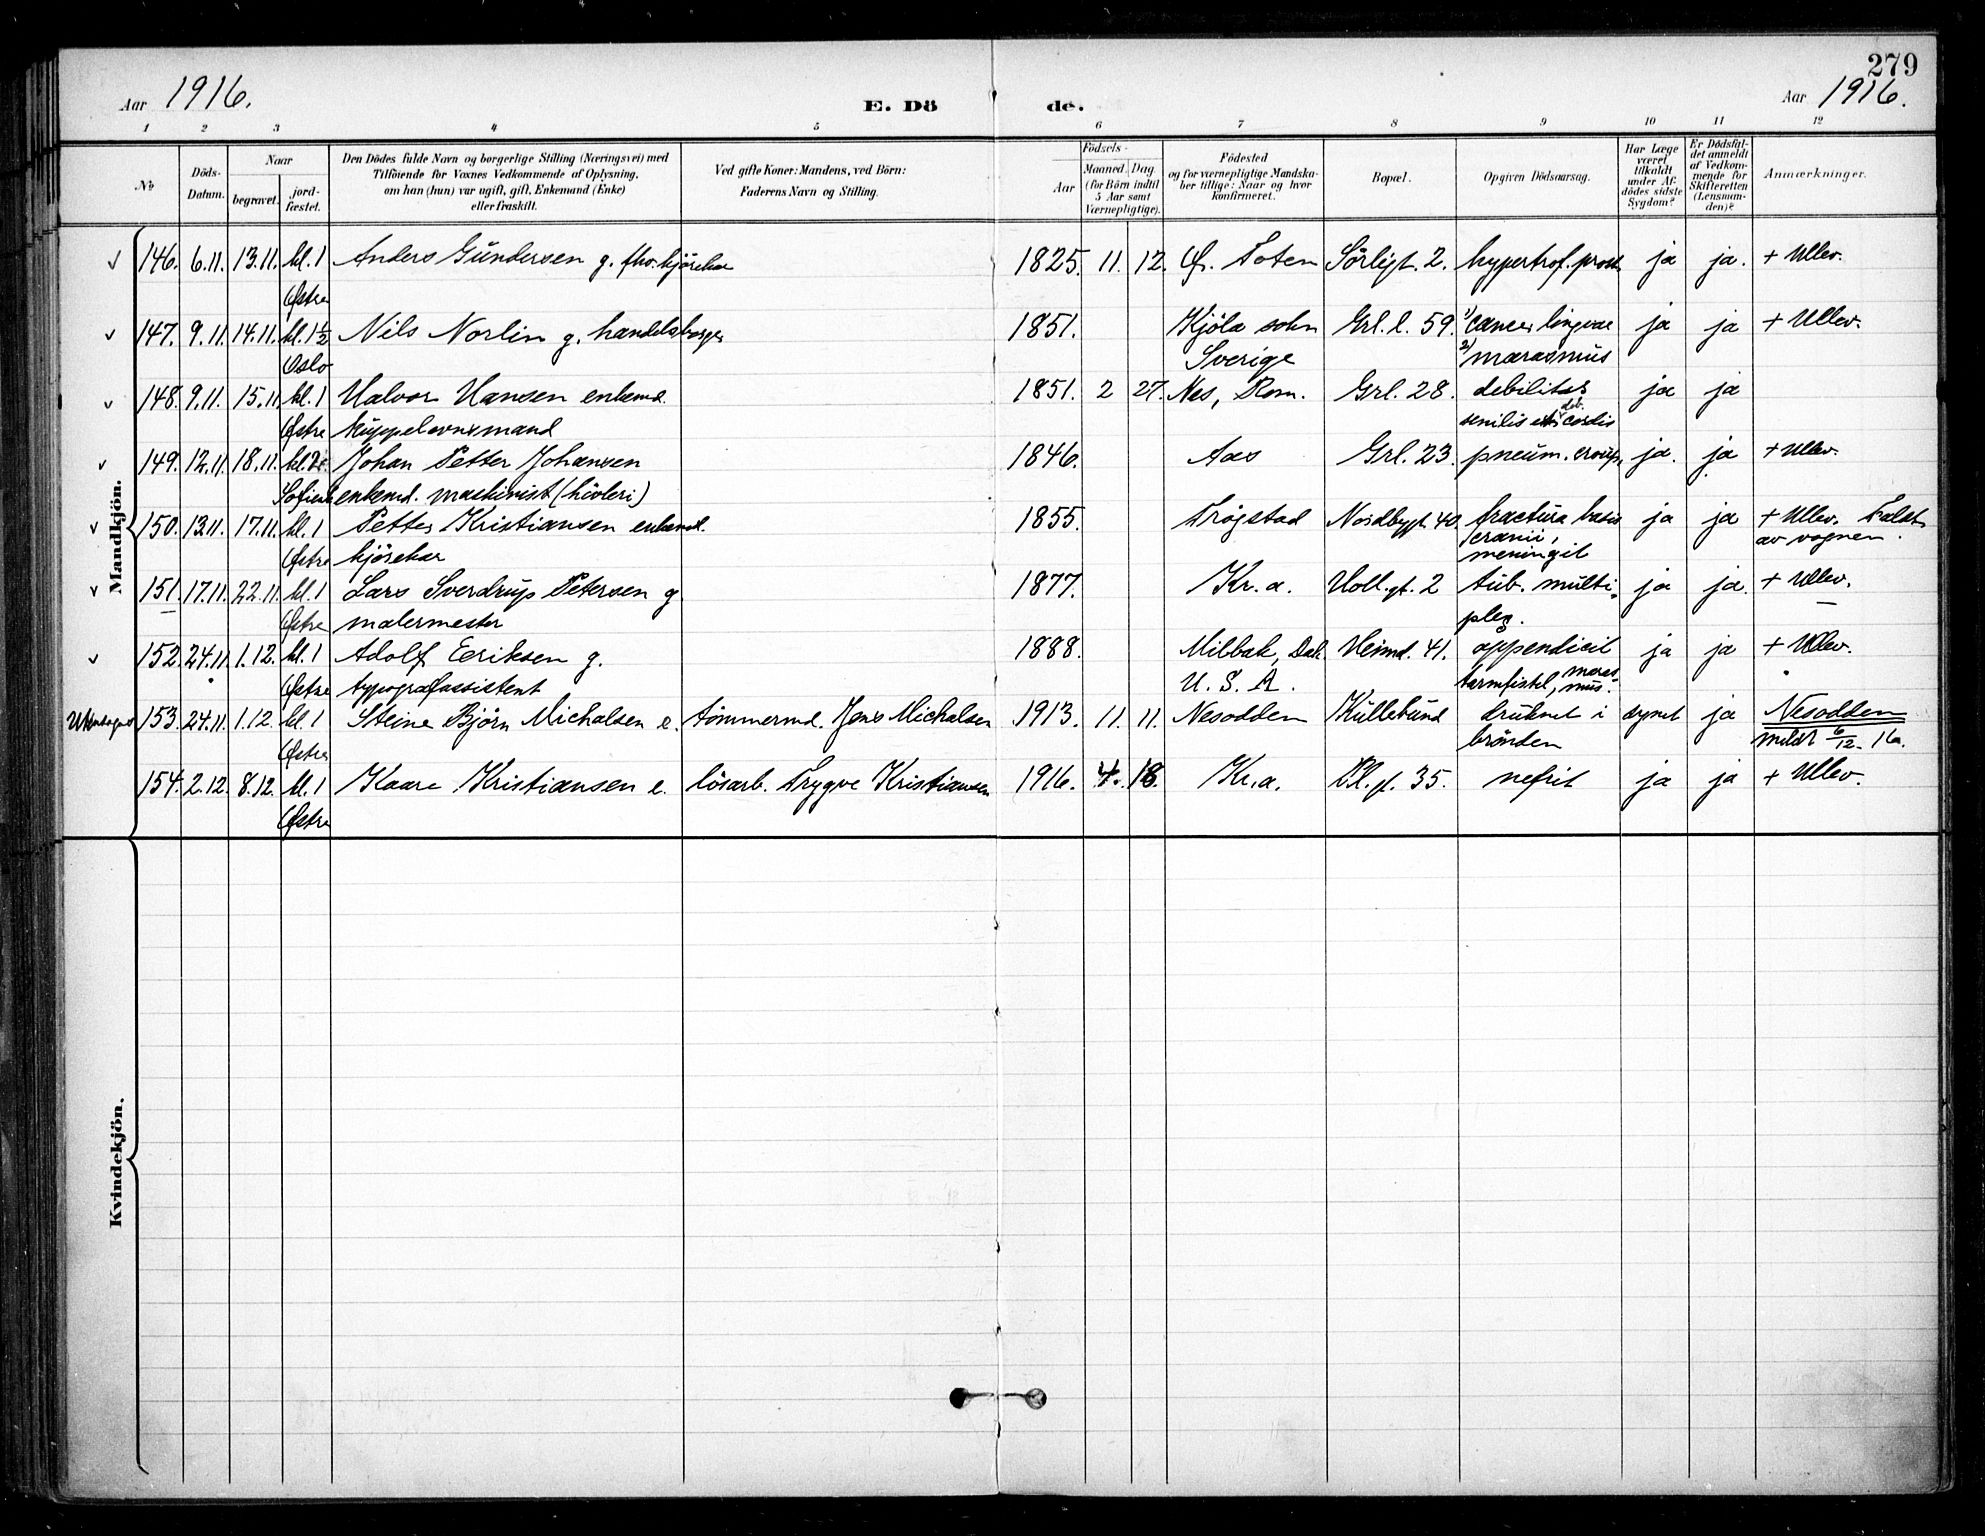 279
Aar 1916.
E. Dö de.
Aar 1916.
1 2 3 4 5 6 7 8 9 10 11 12
No
Döds-
Datum.
Naar
begravet.
jord-
fæstet.
Den Dödes fulde Navn og borgerlige Stilling (Næringsvei) med
Tilföiende for Voxnes Vedkommende af Oplysning,
om han (hun) var ugift, gift, Enkemand (Enke)
eller fraskilt.
Ved gifte Koner: Mandens, ved Börn:
Faderens Navn og Stilling.
Födsels-
Aar
Maaned. Dag.
(for Börn indtil
5 Aar samt
Værnepligtige).
Födested
og for værnepligtige Mandska-
ber tillige: Naar og hvor
konfirmeret.
Bopæl.
Opgiven Dödsaarsag.
Har Læge
været
tilkaldt
under Af-
dödes sidste
Sygdom?
Er Dödsfal-
det anmeldt
af Vedkom-
mende for
Skifteretten
(Lensman-
den)?
Anmærkninger.
Mandkjön.
146. 6.11. 13.11. kl. 1 Anders Gundersen g. fhv. kjörekar 1825. 11. 12. Ø. Toten Sörligt. 2. hypertrof. prost. ja ja. + Ullev.
Østre
147. 9.11. 14.11. kl. 1½ Nils Norlin g. handelsborger 1851. Kjöla sokn Grl. l. 59. 1) cancer lingvae ja ja + Ullev.
Oslo Sverige 2) marasmus
148. 9.11. 15.11. kl. 1 Halvor Hansen enkemd. 1851. 2 27. Nes, Rom. Grl. 28. debilitas ja ja
Østre kuppelovnsmand senilis et deb. cordis
149. 12.11. 18.11. Johan Petter Johansen 1846. Aas Grl. 23. pneum. croup. ja. ja + Ullev.
Sofienb enkemd. maskinist (hövleri)
150. 13.11. 17.11. kl. 1 Petter Kristiansen enkemd. 1855. Trögstad Nordbygt. 40. fractura basis ja ja + Ullev. Faldt
Østre kjörekar cranii, av vognen.
meningit
151. 17.11. 22.11. kl. 1 Lars Sverdrup Petersen g. 1877. Kr.a. Holl. gt. 2 tub. multi- ja ja. + Ullev.
Østre malermester plex.
152. 24.11. 1.12. kl. 1 Adolf Eeriksen g. 1888. Milbak, Dak. Heimd. 41. appendicit ja ja + Ullev.
Østre typografassistent U. S. A. tarmfistel, maras-
mus.
153. 24.11. 1.12. kl. 1 Steine Björn Michalsen e. tömmermd. Jens Michalsen 1913. 11. 11. Nesodden Küllebund druknet i synet ja Nesodden
Østre brönden meldt 6/12. 16.
154. 2.12. 8.12. kl. 1 Kaare Kristiansen e. lösarb. Trygve Kristiansen 1916. 4. 18. Kr.a. Pl. gt. 35. nefrit ja ja + Ullev.
Østre
Kvindekjön.